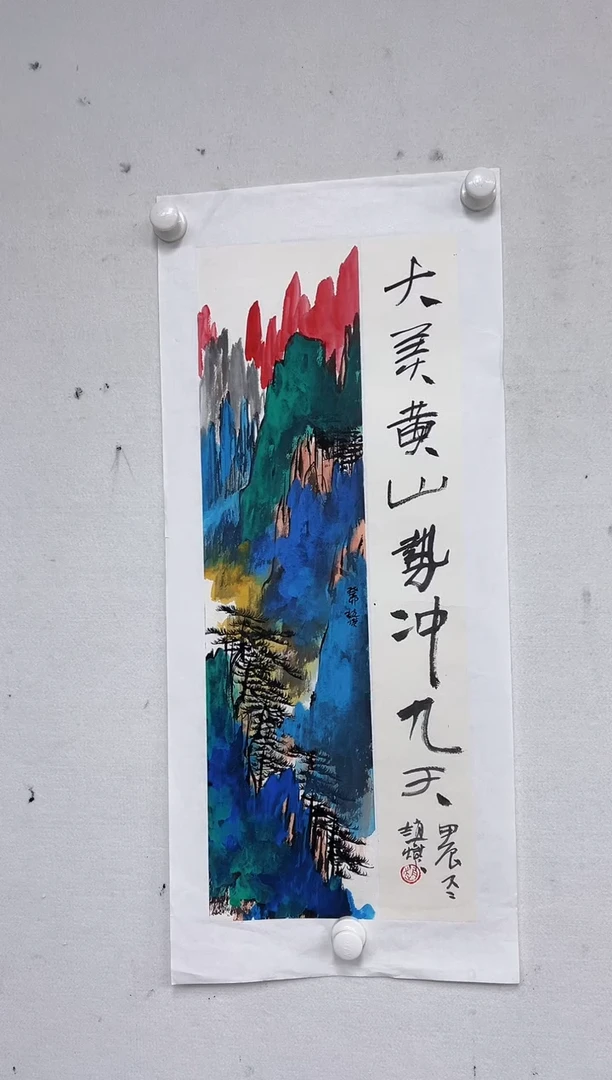 大美黄山势冲九天
甲辰冬